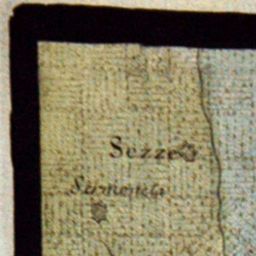 Sezze
Sermoneta